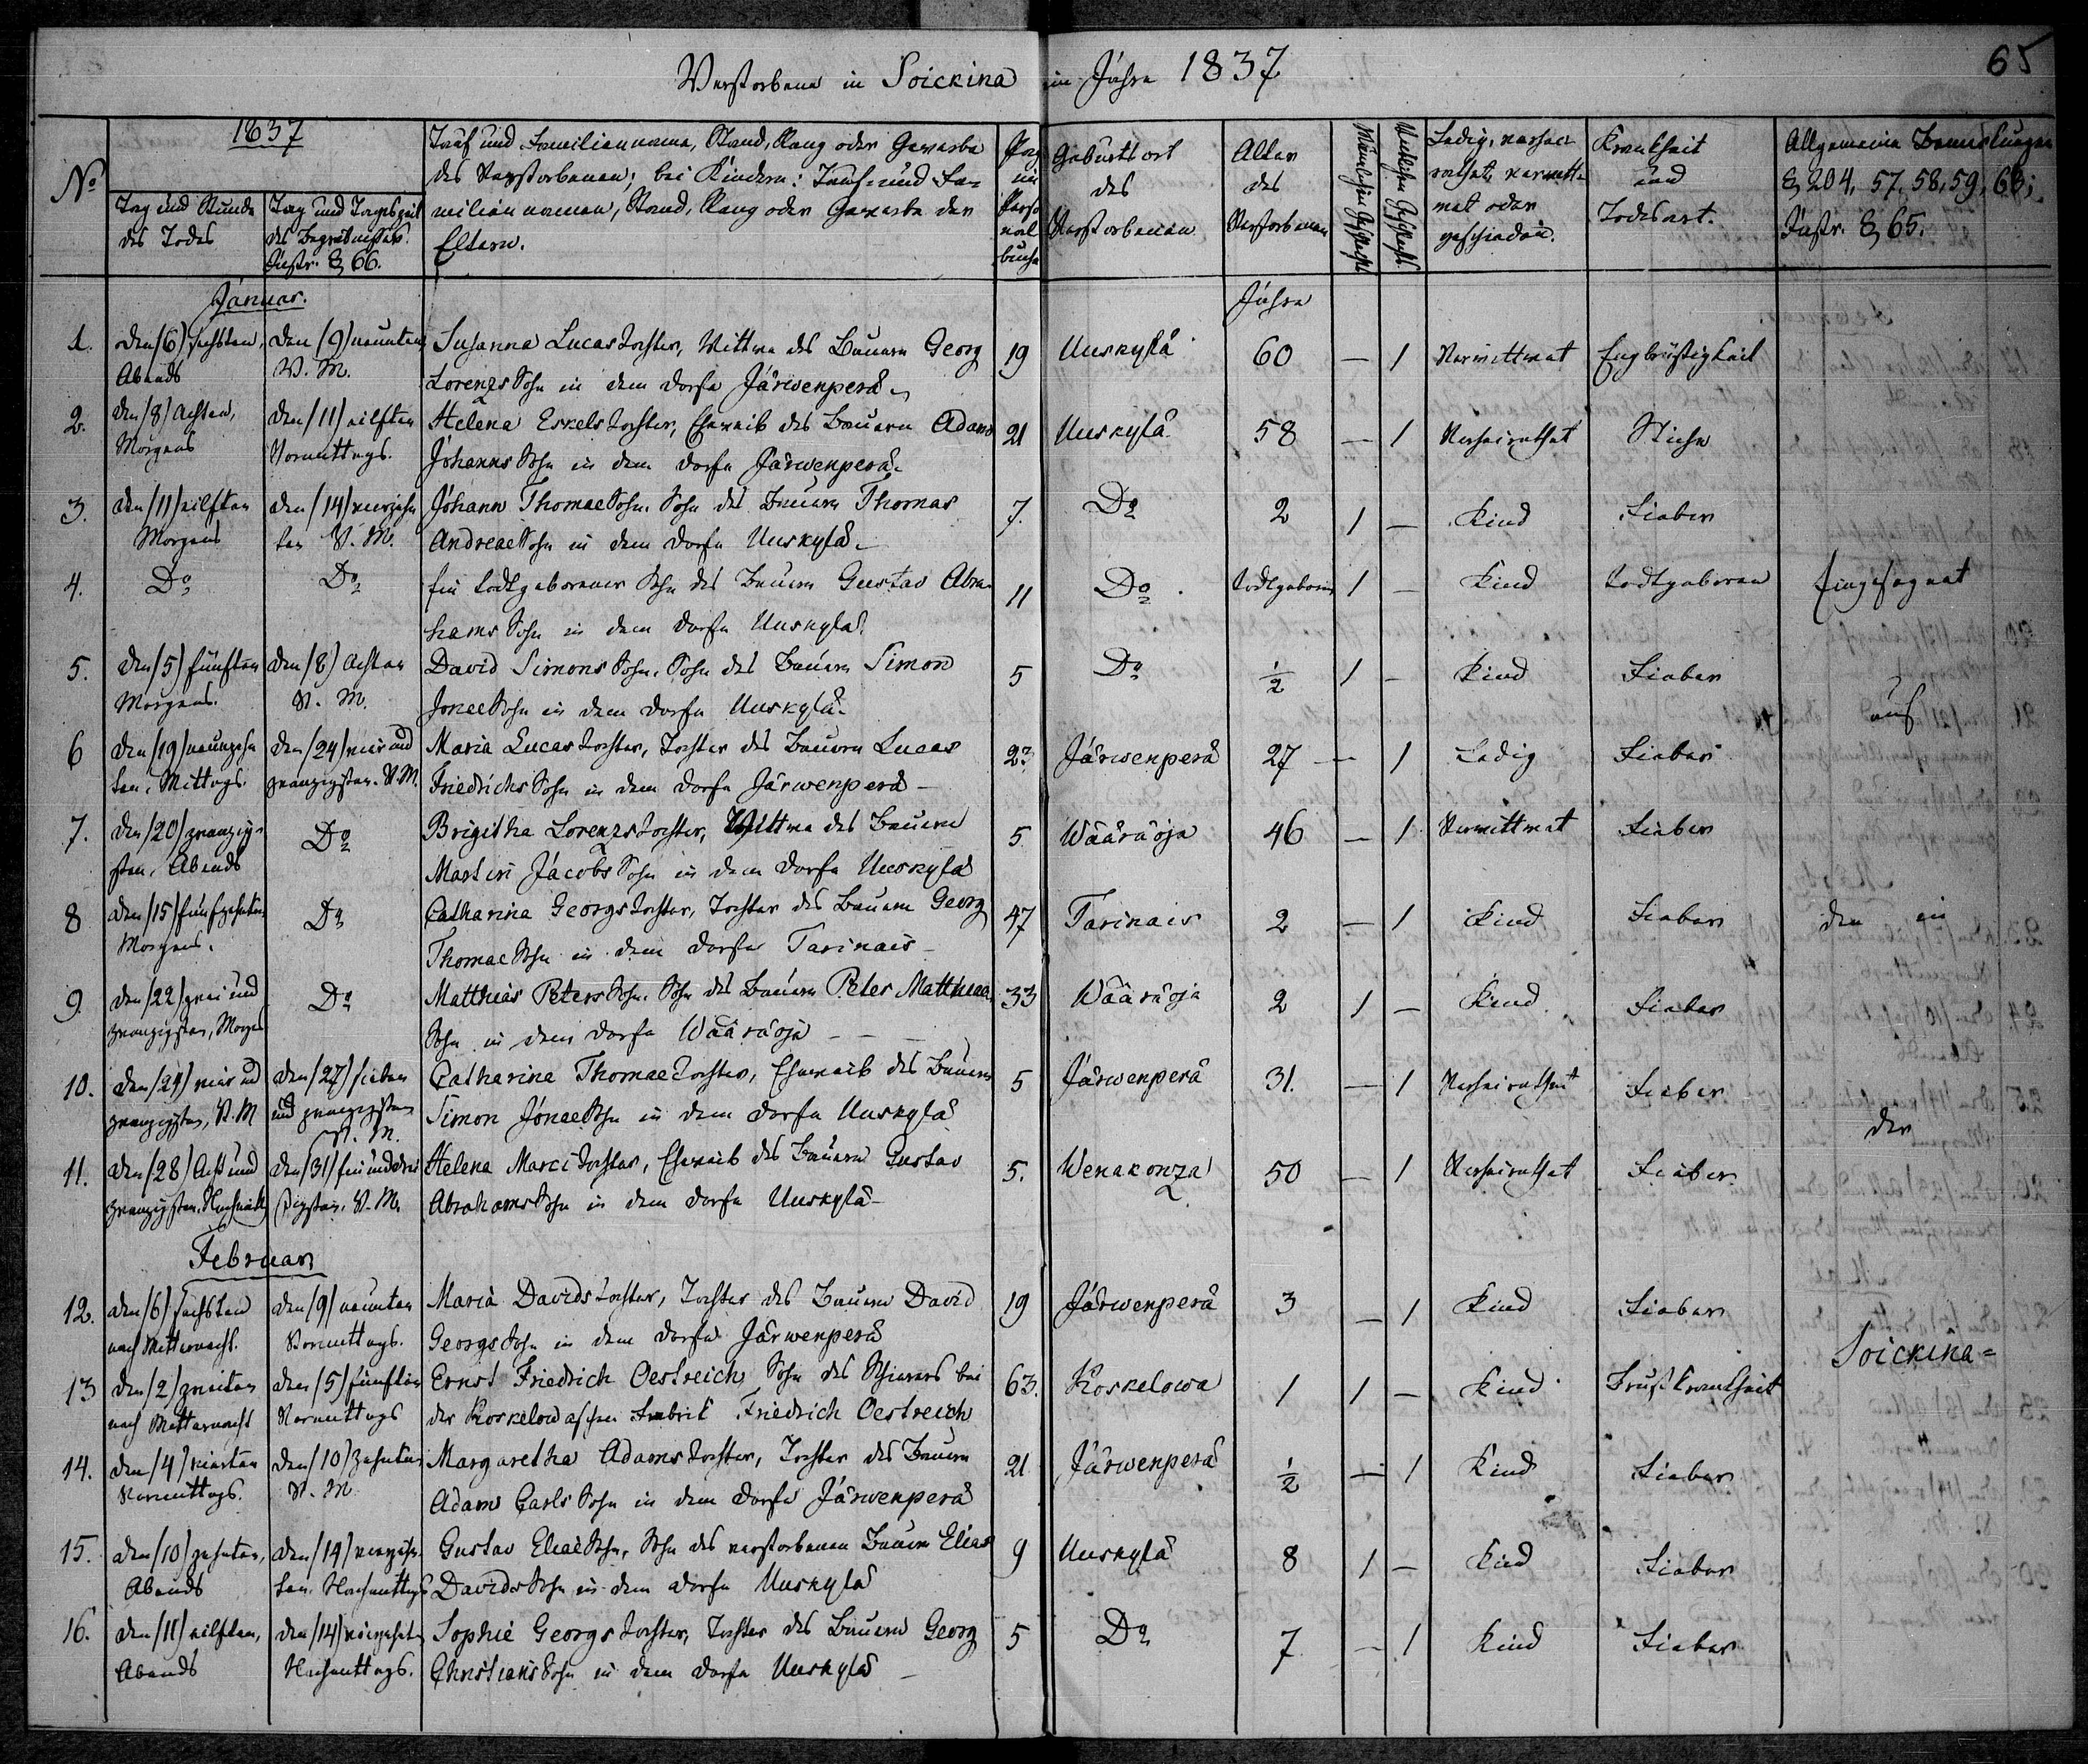 Verstorbene in Soickina im Jahre 1837
65
No
1837
Tag und Stunde des Todes
Tag und Tageszeit des Begräbnisses. Instr. § 66.
Tauf und Familienname, Stand, Rang oder Gewerbe
des Verstorbenen; bei Kindern: Tauf- und Fa-
miliennamen, Stand, Rang oder Gewerbe der
Eltern.
Pag im Perso nal buche
Geburtsort des Verstorbenen
Alter des Verstorbenen
Männlichen Geschlechts
Weiblichen Geschlechts
Ledig, verhei rathet, verwitt- wet oder geschieden.
Krankheit und Todesart.
Allgemeine Bemerkungen
§ 204, 57, 58, 59, 63;
Instr. § 65.
Januar.
Jahre
1. den (6) sechsten, den (9) neunten Susanna Lucastochter, Wittwe des Bauern Georg 19 Uuskylä 60 — 1 Verwittwet Engbrüstigkeit
Abends V. M. LorenzsSohn in dem Dorfe Järwenperä
2. den (8) Achten, den (11) eilften Helena Erkelstochter, Eheweib des Bauern Adam 21 Uuskylä 58 — 1 Verheirathet Stiche
Morgens Vormittags. JohannsSohn in dem Dorfe Järwenperä.
3. den (11) eilften den (14) vierzehn Johann ThomaeSohn, Sohn des Bauern Thomas 7. Do 2 1 — Kind Fieber
Morgens ten V. M. AndreaeSohn in dem Dorfe Uuskylä
4. Do Do Ein todtgeborener Sohn des Bauern Gustav Abra- 11 Do todtgeboren 1 — Kind todtgeboren Eingesegnet
hams Sohn in dem Dorfe Uuskylä.
5. den (5) fünften den (8) Achten David SimonsSohn, Sohn des Bauern Simon 5 Do ½ 1 — Kind Fieber
Morgens. V. M. JonaeSohn in dem Dorfe Uuskylä auf
6 den (19) neunzehn den (24) vier und Maria Lucastochter, Tochter des Bauern Lucas 23 Järwenperä 27 — 1 Ledig Fieber
ten, Mittags. zwanzigsten. V. M. FriedrichsSohn in dem Dorfe Järwenperä
7. den (20) zwanzig- Do Brigitha Lorenzstochter, Wittwe des Bauern 5. Wääräoja 46 — 1 Verwittwet Fieber
sten, Abends Martin JacobsSohn in dem Dorfe Uuskylä
8 den (15) fünfzehnten Do Catharina Georgstochter, Tochter des Bauern Georg 47 Tarinais 2 — 1 Kind Fieber den in
Morgens. ThomaeSohn in dem Dorfe Tarinais
9. den (22) zwei und Do Matthias PetersSohn, Sohn des Bauern Peter Matthiae 33 Wääräoja 2 1 — Kind Fieber
zwanzigsten, Morgens Sohn in dem Dorfe Wääräoja
10. den (24) vier und den (27) sieben Catharina Thomaetochter, Eheweib des Bauern 5 Järwenperä 31. — 1 Verheirathet Fieber
zwanzigsten, V. M und zwanzigsten V. M. Simon JonaeSohn in dem Dorfe Uuskylä der
11. den (28) Acht und den (31) ein und drei Helena Marcitochter, Eheweib des Bauern Gustav 5. Wenakonza 50 — 1 Verheirathet Fieber
zwanzigsten, ßigsten, V. M. AbrahamsSohn in dem Dorfe Uuskylä
Februar
12. den (6) sechsten den (9) neunten Maria Davidstochter, Tochter des Bauern David 19 Järwenperä 3 — 1 Kind Fieber
nach Mitternacht. Vormittags. GeorgsSohn in dem Dorfe Järwenperä Soickina=
13 den (2) zweiten den (5) fünften Ernst Friedrich Oestreich, Sohn des bei 63. Koskelowa 1 1 — Kind Brustkrankheit
nach Mitternacht Vormittags der Koskelowaschen Fabrik Friedrich Oestreich
14. den (4) vierten den (10) zehnten Margaretha Adamstochter, Tochter des Bauern 21 Järwenperä ½ — 1 Kind Fieber
Vormittags. V. M Adam CarlsSohn in dem Dorfe Järwenperä
15. den (10) zehnten, den (14) vierzehn- Gustav EliaeSohn, Sohn des verstorbenen Bauern Elias 9 Uuskylä 8 1 — Kind Fieber
Abends ten Nachmittags DavidsSohn in dem Dorfe Uuskylä
16. den (11) eilften, den (14) vierzehnten Sophie Georgstochter, Tochter des Bauern Georg 5 Do 7 — 1 Kind Fieber
Abends Nachmittags. ChristiansSohn in dem Dorfe Uuskylä